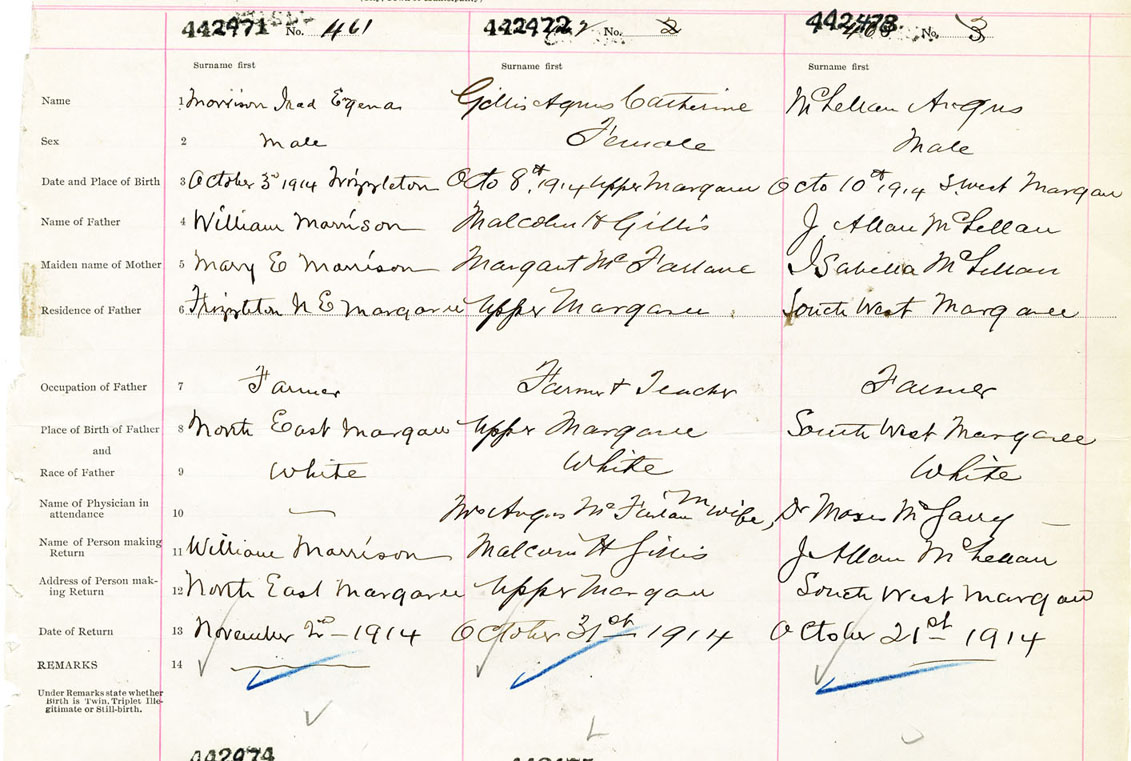 442471 No. 461 442472 No. 2 442473 No. 3
Surname first Surname first Surname first
Name 1 Morrison Irad Gillis Agnus Catherine McLellan Angus
Sex 2 Male Female Male
Date and Place of Birth 3 October 3rd 1914 Frizzleton Octo 8th 1914 Upper Margaree Octo 10th 1914 S. West Margaree
Name of Father 4 William Morrison Malcolm H Gillis J. Allan McLellan
Maiden name of Mother 5 Mary E Morrison Margart McFarlane Isabella McLellan
Residence of Father 6 Frizzleton N E Margaree Upper Margaree South West Margaree
Occupation of Father 7 Farmer Farmer + Teacher Farmer
Place of Birth of Father 8 North East Margaree Upper Margaree South West Margaree
and
Race of Father 9 White White White
Name of Physician in
attendance 10 — Mrs Angus McFarlan M Wife, Dr Moses McGarry —
Name of Person making
Return 11 William Morrison Malcolm H Gillis J. Allan McLellan
Address of Person mak-
ing Return 12 North East Margaree Upper Margaree South West Margaree
Date of Return 13 November 2nd — 1914 October 31st 1914 October 21st 1914
REMARKS 14
Under Remarks state whether
Birth is Twin, Triplet Ille-
gitimate or Still-birth.
442474